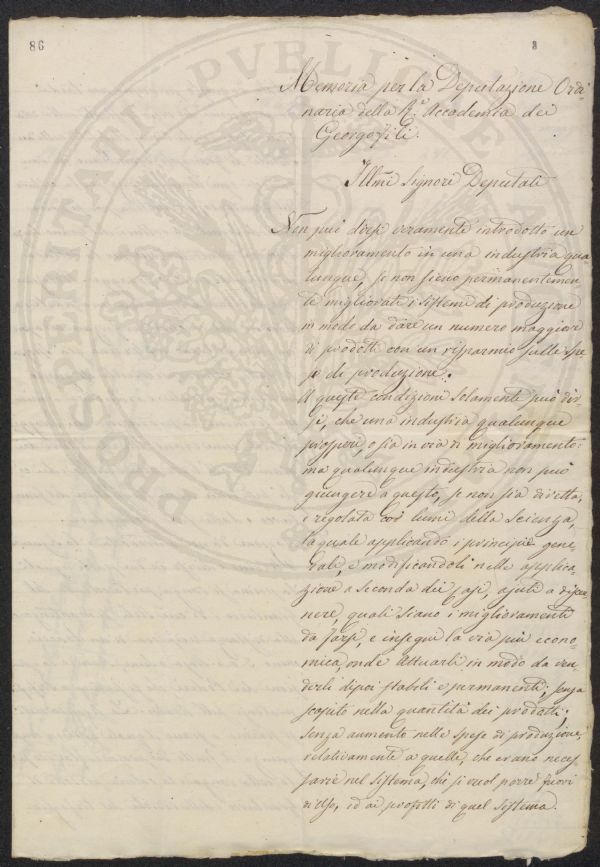 86
8
PROSPERITATI PVBLICAE
Memoria per la Deputazione Ordi-
naria della R.ª Accademia dei
Georgofili.
Illmi Signori Deputati
Non può dirsi veramente introdotto un
miglioramento in una industria qua
lunque, se non sieno permanentemen-
te migliorati i sistemi di produzione
in modo da dare un numero maggiore
di prodotti con un risparmio sulle spe
se di produzione.
A queste condizioni solamente può dir-
si, che una industria qualunque
prosperi, o sia in via di miglioramento:
ma qualunque industria non può
giungere a questo, se non sia diretta,
e regolata coi lumi della Scienza,
la quale applicando i principii gene
rali, e modificandoli nelle applica
zione a seconda dei casi, ajuti a
quali siano i miglioramenti
da farsi, e insegni la via più econo-
mica, onde attuarli in modo da ren-
derli dipoi stabili e permanenti; senza
scapito nella quantità dei prodotti;
senza aumento nelle spese di produzione,
relativamente a quelle, che erano neces
sarie nel sistema, che si vuol porre fuori
di uso, ed ai prodotti di quel sistema.